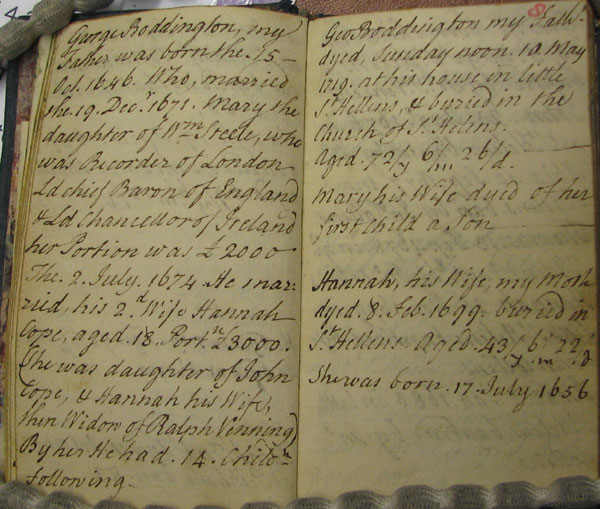 George Boddington, my
Father was born the. 15-
Oct. 1646. Who, married
the. 19. Decr 1671. Mary the
daughter of Wm Steele, who
was Recorder of London
Ld chief Baron of England
& Ld Chancellor of Ireland
her Portion was £2000
The. 2. July. 1674. He mar:
ried, his 2d Wife Hannah
Cope, aged. 18. Portn £3000.
(she was daughter of John
Cope, & Hannah his Wife,
then Widow of Ralph Venning)
By her He had. 14. Childn
following-
8
Geo Boddington my Fathr
dyed, Sunday noon. 10. May
1719. at his house in little
St Hellens, & buried in the
Church of St Helens.
Aged. 72/y 6/m 26/d.
Mary his Wife dyed of her
first Child a Son
Hannah, his Wife, my Moth
dyed. 8. Feb. 1699. buried in
St Hellens. Aged. 43/y 6/m 22/d
She was born. 17. July 1656